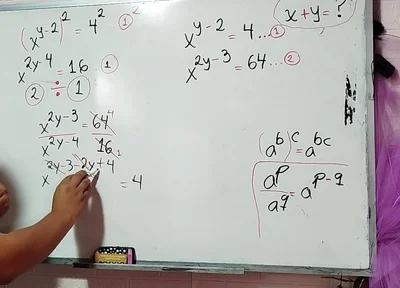 (x^{y-2})^2 = 4^2 ①
x^{2y-4} = 16 ①
② ÷ ①
x^{2y-3} / x^{2y-4} = 64^4 / 16_1
x^{2y-3-2y+4} = 4
x+y=?
x^{y-2} = 4 ...①
x^{2y-3} = 64 ...②
(a^b)^c = a^{bc}
a^p / a^q = a^{p-q}